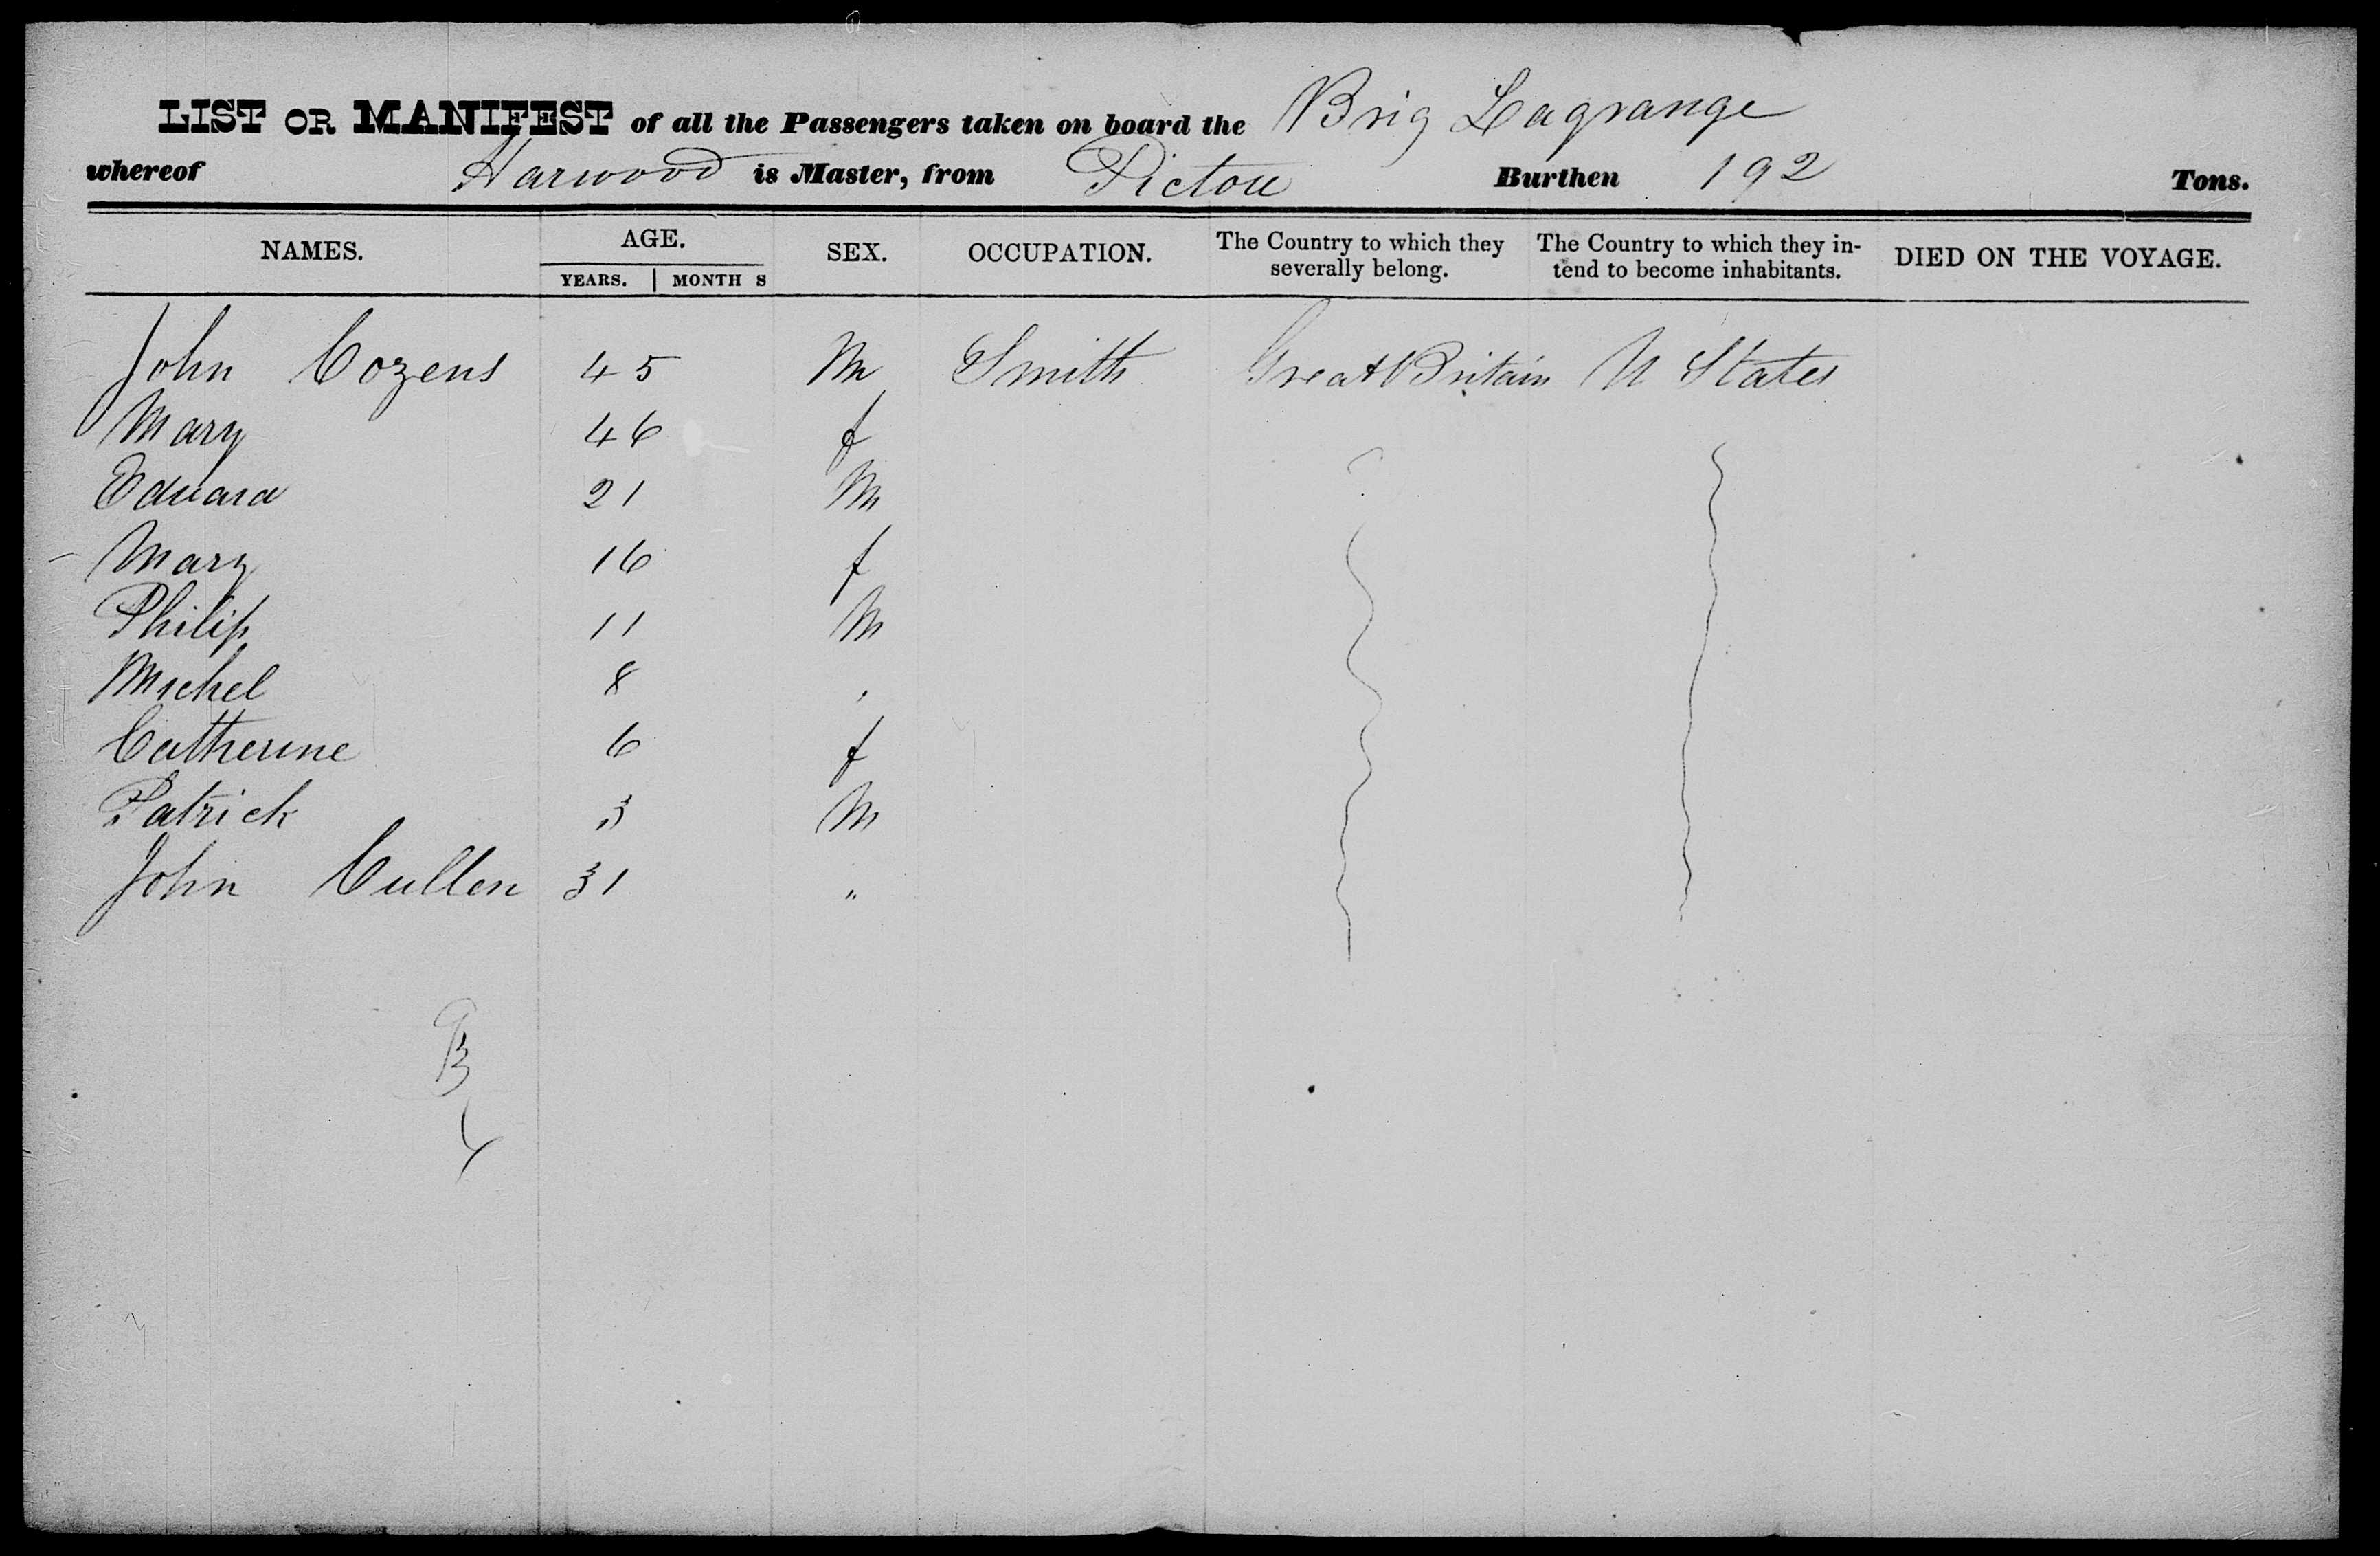 LIST OR MANIFEST of all the Passengers taken on board the Brig Lagrange
whereof Harwood is Master, from Pictou Burthen 192 Tons.
NAMES. AGE. SEX. OCCUPATION. The Country to which they severally belong. The Country to which they in- tend to become inhabitants. DIED ON THE VOYAGE.
YEARS. MONTHS
John Cozens 45 M Smith Great Britain U States
Mary 46 f
Edward 21 M
Mary 16 f
Philip 11 M
Michel 8 "
Catherine 6 f
Patrick 3 M
John Cullen 31 "